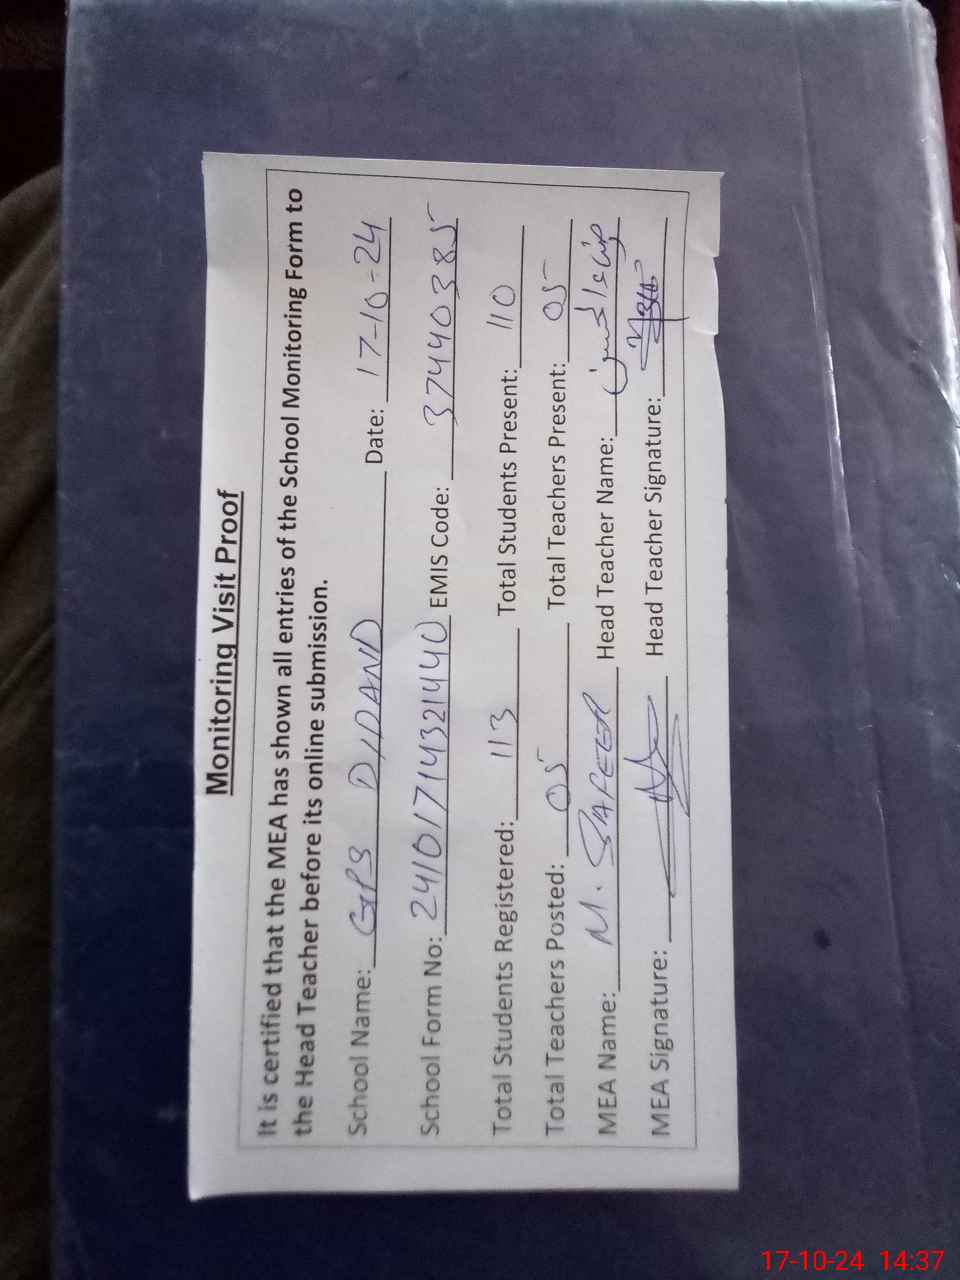 Monitoring Visit Proof
It is certified that the MEA has shown all entries of the School Monitoring Form to
the Head Teacher before its online submission.
School Name: GPS DIDAND Date: 17-10-24
School Form No: 24101714321440 EMIS Code: 37440385
Total Students Registered: 113 Total Students Present: 110
Total Teachers Posted: 05 Total Teachers Present: 05
MEA Name: M. SAFEER Head Teacher Name:
MEA Signature: Head Teacher Signature:
17-10-24 14:37